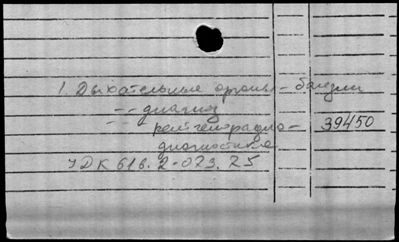 1. Дыхательные органы - болезни
-"- диагноз
-"- рентгенрадио- 39450
диагностика
УДК 616.2-073.75